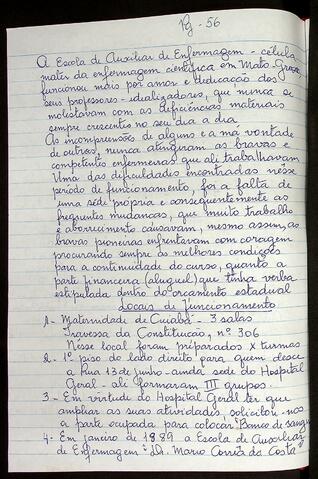 Pg - 56
A Escola de Auxiliar de Enfermagem - célula
mater da enfermagem científica em Mato Grosso
funcionou mais por amor e dedicação dos
seus professores - idealizadores, que nunca se
molestavam com as deficiências materiais
sempre crescentes no seu dia a dia
As incompreensões de alguns e a má vontade
de outros, nunca atingiram as bravas e
competentes enfermeiras que ali trabalhavam
Uma das dificuldades encontradas nesse
período de funcionamento, foi a falta de
uma séde própria e consequentemente as
frequentes mudanças, que muito trabalho
e aborrecimento causavam, mesmo assim, as
bravas pioneiras enfrentavam com coragem
procurando sempre as melhores condições
para a continuidade do curso, quanto a
parte financeira (aluguel) que tinha verba
estipulada dentro do orcamento estadual
Locais de Funcionamento
1 - Maternidade de Cuiabá - 3 salas
Travessa da Constituição, nº 306
Nesse local foram preparados X turmas
2 - 1º piso do lado direito para quem desce
a Rua 13 de junho - ainda sede do Hospital
Geral - ali formaram III grupos.
3 - Em virtude do Hospital Geral ter que
ampliar as suas atividades, solicitou-nos
a parte ocupada para colocar "Banco de sangue
4 - Em janeiro de 1989 a Escola de Auxiliar
de Enfermagem "Dr. Mario Corrêa da Costa"